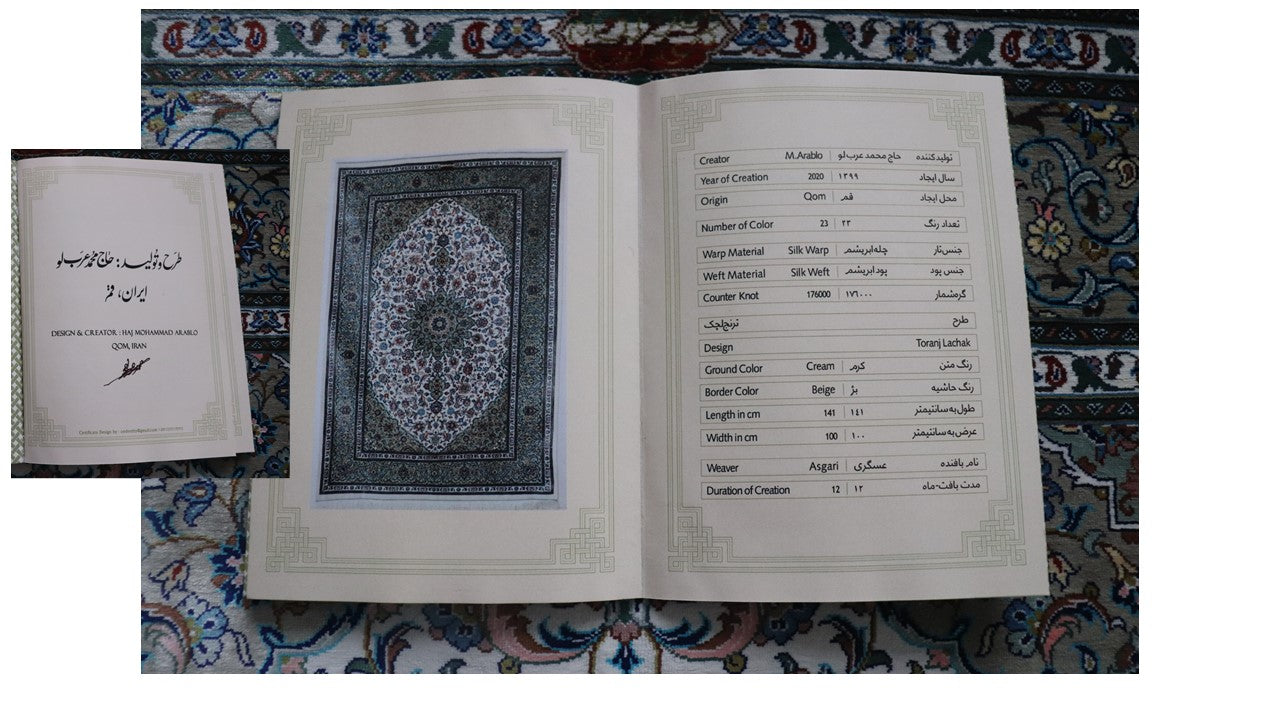 طرح و تولید: حاج محمد عرب لو
ایران، قم
DESIGN & CREATOR : HAJ MOHAMMAD ARABLO
QOM, IRAN
Certificate Design by :
Creator M.Arablo | حاج محمد عرب لو تولیدکننده
Year of Creation 2020 | ۱۳۹۹ سال ایجاد
Origin Qom | قم محل ایجاد
Number of Color 23 | ۲۳ تعداد رنگ
Warp Material Silk Warp | چله‌ابریشم جنس‌تار
Weft Material Silk Weft | پودابریشم جنس پود
Counter Knot 176000 | ۱۷٦۰۰۰ گره‌شمار
ترنج‌لچک طرح
Design Toranj Lachak
Ground Color Cream | کرم رنگ متن
Border Color Beige | بژ رنگ حاشیه
Length in cm 141 | ۱٤۱ طول‌به‌سانتیمتر
Width in cm 100 | ۱۰۰ عرض‌به‌سانتیمتر
Weaver Asgari | عسگری نام بافنده
Duration of Creation 12 | ۱۲ مدت بافت-ماه